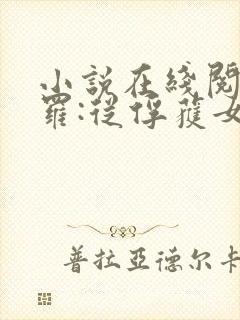 小說在綫閱
羅:從俘獲女
普拉亞德爾卡